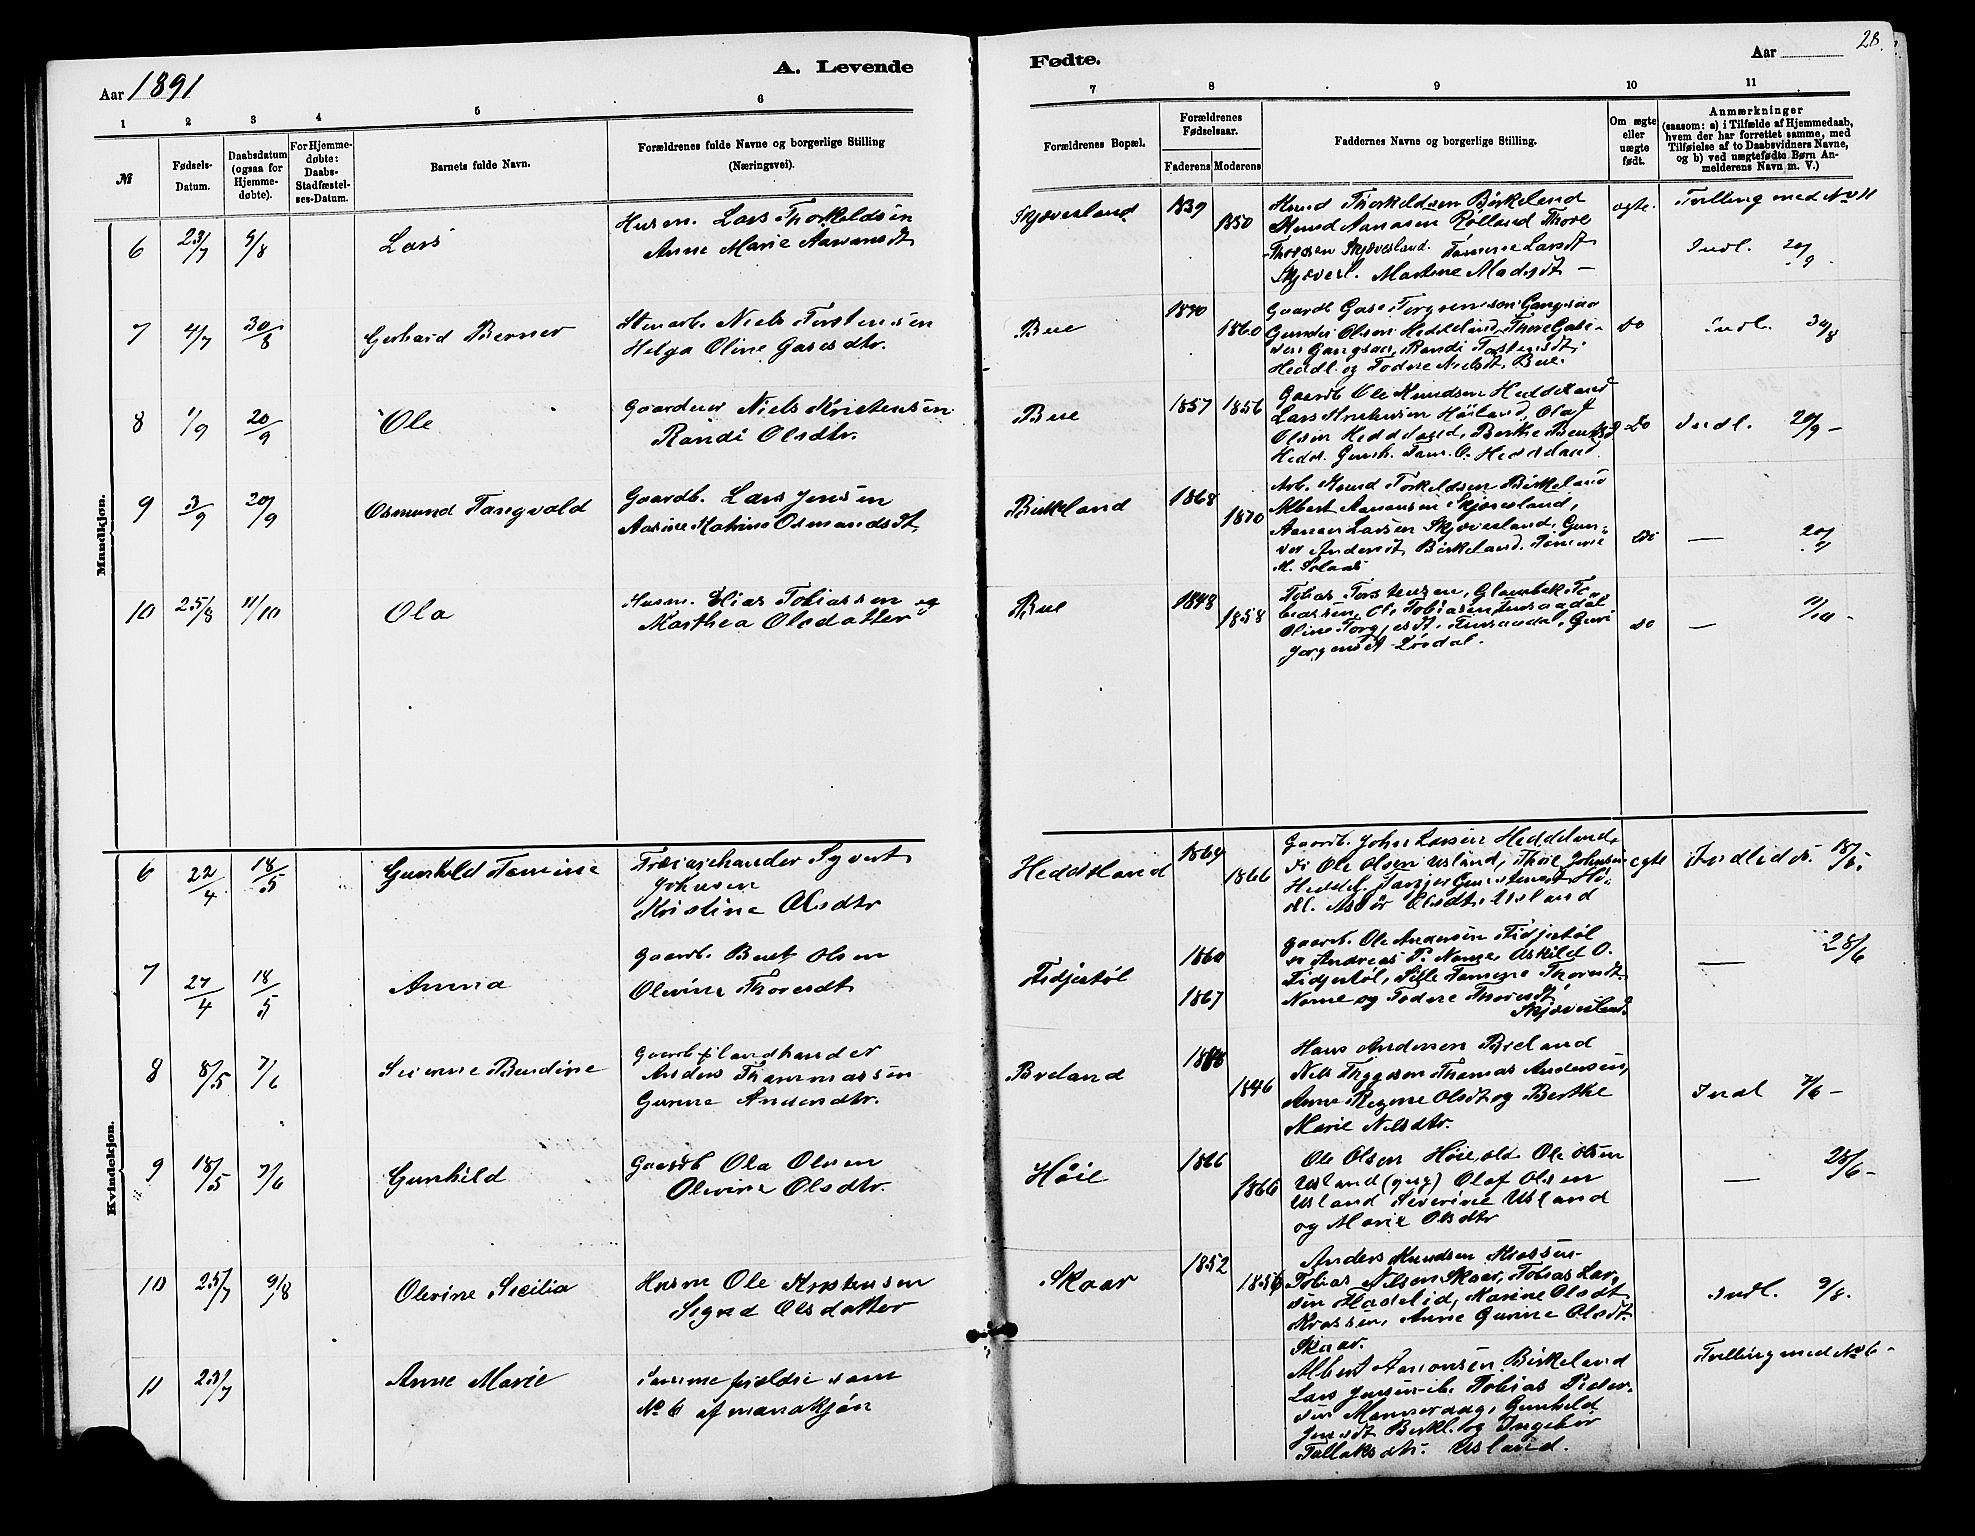 28.
Aar 1891
A. Levende
Fødte.
Aar
1 2 3 4 5 6 7 8 9 10 11
№
Fødsels-Datum.
Daabsdatum (ogsaa for Hjemmedøbte).
For Hjemmedøbte: Daabs-Stadfæstelses-Datum.
Barnets fulde Navn.
Forældrenes fulde Navne og borgerlige Stilling (Næringsvei).
Forældrenes Bopæl.
Forældrenes Fødselsaar.
Faderens Moderens
Faddernes Navne og borgerlige Stilling.
Om ægte eller uægte født.
Anmærkninger
(saasom: a) i Tilfælde af Hjemmedaab, hvem der har forrettet samme, med Tilføielse af to Daabsvidners Navne, og b) ved uægtefødte Børn Anmelderens Navn m. V.)
Mandkjøn.
6 23/7 9/8 Lars
Husm. Lars Thorkeldsen
Anne Marie Aanensdt
Skjævesland 1839 1850
Knud Thorkeldsen Birkeland
Knud Aanasen Rølland Thore
Thorsen Skjævesland. Tomine Larsdt
Skjævesl. Martine Madsdt –
ægte. Tvilling med No 11
Indl. 20/9.
7 4/7 30/8 Gerhard Berner
Stenarb. Niels Torstensen
Helga Oline Gasesdtr.
Bue 1840 1860
Gaardb. Gase Torgrimsen Gangsaa
Gunder Olsen Heddeland, Thore Gase-
sen Gangsaa, Randi Torstensdt.
Heddl. og Todne Nielsdt. Bue.
Do Indl. 30/8
8 1/9 20/9 Ole
Gaardeier Niels Kristensen
Randi Olsdtr.
Bue 1857 1856
Gaardb Ole Knudsen Heddeland
Lars Høiland, Olaf
Olsen Heddeland, Berthe
Hedd. Gunh. Tom. O. Heddeland.
Do Indl. 20/9 –
9 3/9 20/9 Osmund Tangvald
Gaardb. Lars Jensen
Aasine Matrine Osmundsdt
Birkeland 1868 1870
Arb. Knud Torkeldsen Birkeland
Albert Aanonsen Skjævesland,
Aanon Larsen Skjævesland, Gun-
vor Andersdt Birkeland. Tomine
M. Solaas
Do — 20/9
10 25/8 11/10 Ola
Husm. Elias Tobiassen og
Marthea Olsdatter
Bue 1848 1858
Tobias Torstensen, To-
biassen, O. Tobiasen
Oline Guri
Jørgensdt
Do — 11/10 –
Kvindekjøn.
6 22/4 18/5 Gunhild Tomine
Træsjehandler Syvert
Johnsen
Kristine Olsdtr
Heddeland 1864 1866
Gaardb. John Larsen Heddeland,
Do Ole Olsen Usland, Thore Johnsen
Heddel.
Olsdt. Usland
egte Indlidt. 18/5.
7 27/4 18/5 Anna
Gaardb. Bent Olsen
Olivine Thoresdt
Fidjestøl 1860 1867
Gaardb. Ole Andersen Fidjestøl
Do Andreas P. Nome, Askild O.
Fidjestøl, Sille Tomine Thoresdt.
Nome og Todne Thoresdt
Skjævesland.
— 28/6
8 8/5 7/6 Severine Bendine
Gaardb. & landhandler
Anders Thommassen
Gurine Andersdtr.
Breland 1848 1846
Hans Andersen Breland
Nels Thygesen Thomas Andersen,
Anne Regine Olsdt og Berthe
Marie Nilsdtr.
Indl 7/6 –
9 18/5 7/6 Gunhild
Gaardb Ola Olsen
Olivine Olsdtr.
Høie 1866 1866
Ole Olsen Høie old Ole Olsen
Usland (yng) Olaf Olsen
Usland Severine Usland
og Marie Olsdtr
— 28/6 –
10 25/7 9/8 Olevine Sicilia
Husm Ole Torstensen
Signe Olsdatter
Skaar 1852 1856
Anders Knudsen Krossen-
Tobias Nilsen Skaar, Tobias Lar-
sen Narine Olsdt
Krossen, Anne Gurine Olsdt.
Skaar.
Indl. 9/8.
11 23/7 Anne Marie
Samme forældre som
No 6 af mandkjøn
Albert Aanonsen Birkeland
Lars Jensen ib. Tobias Peder-
sen Gunhild
Jensdt Birkl. og Ingebor
Tallaksdtr. Usland.
Tvilling med No 6 –